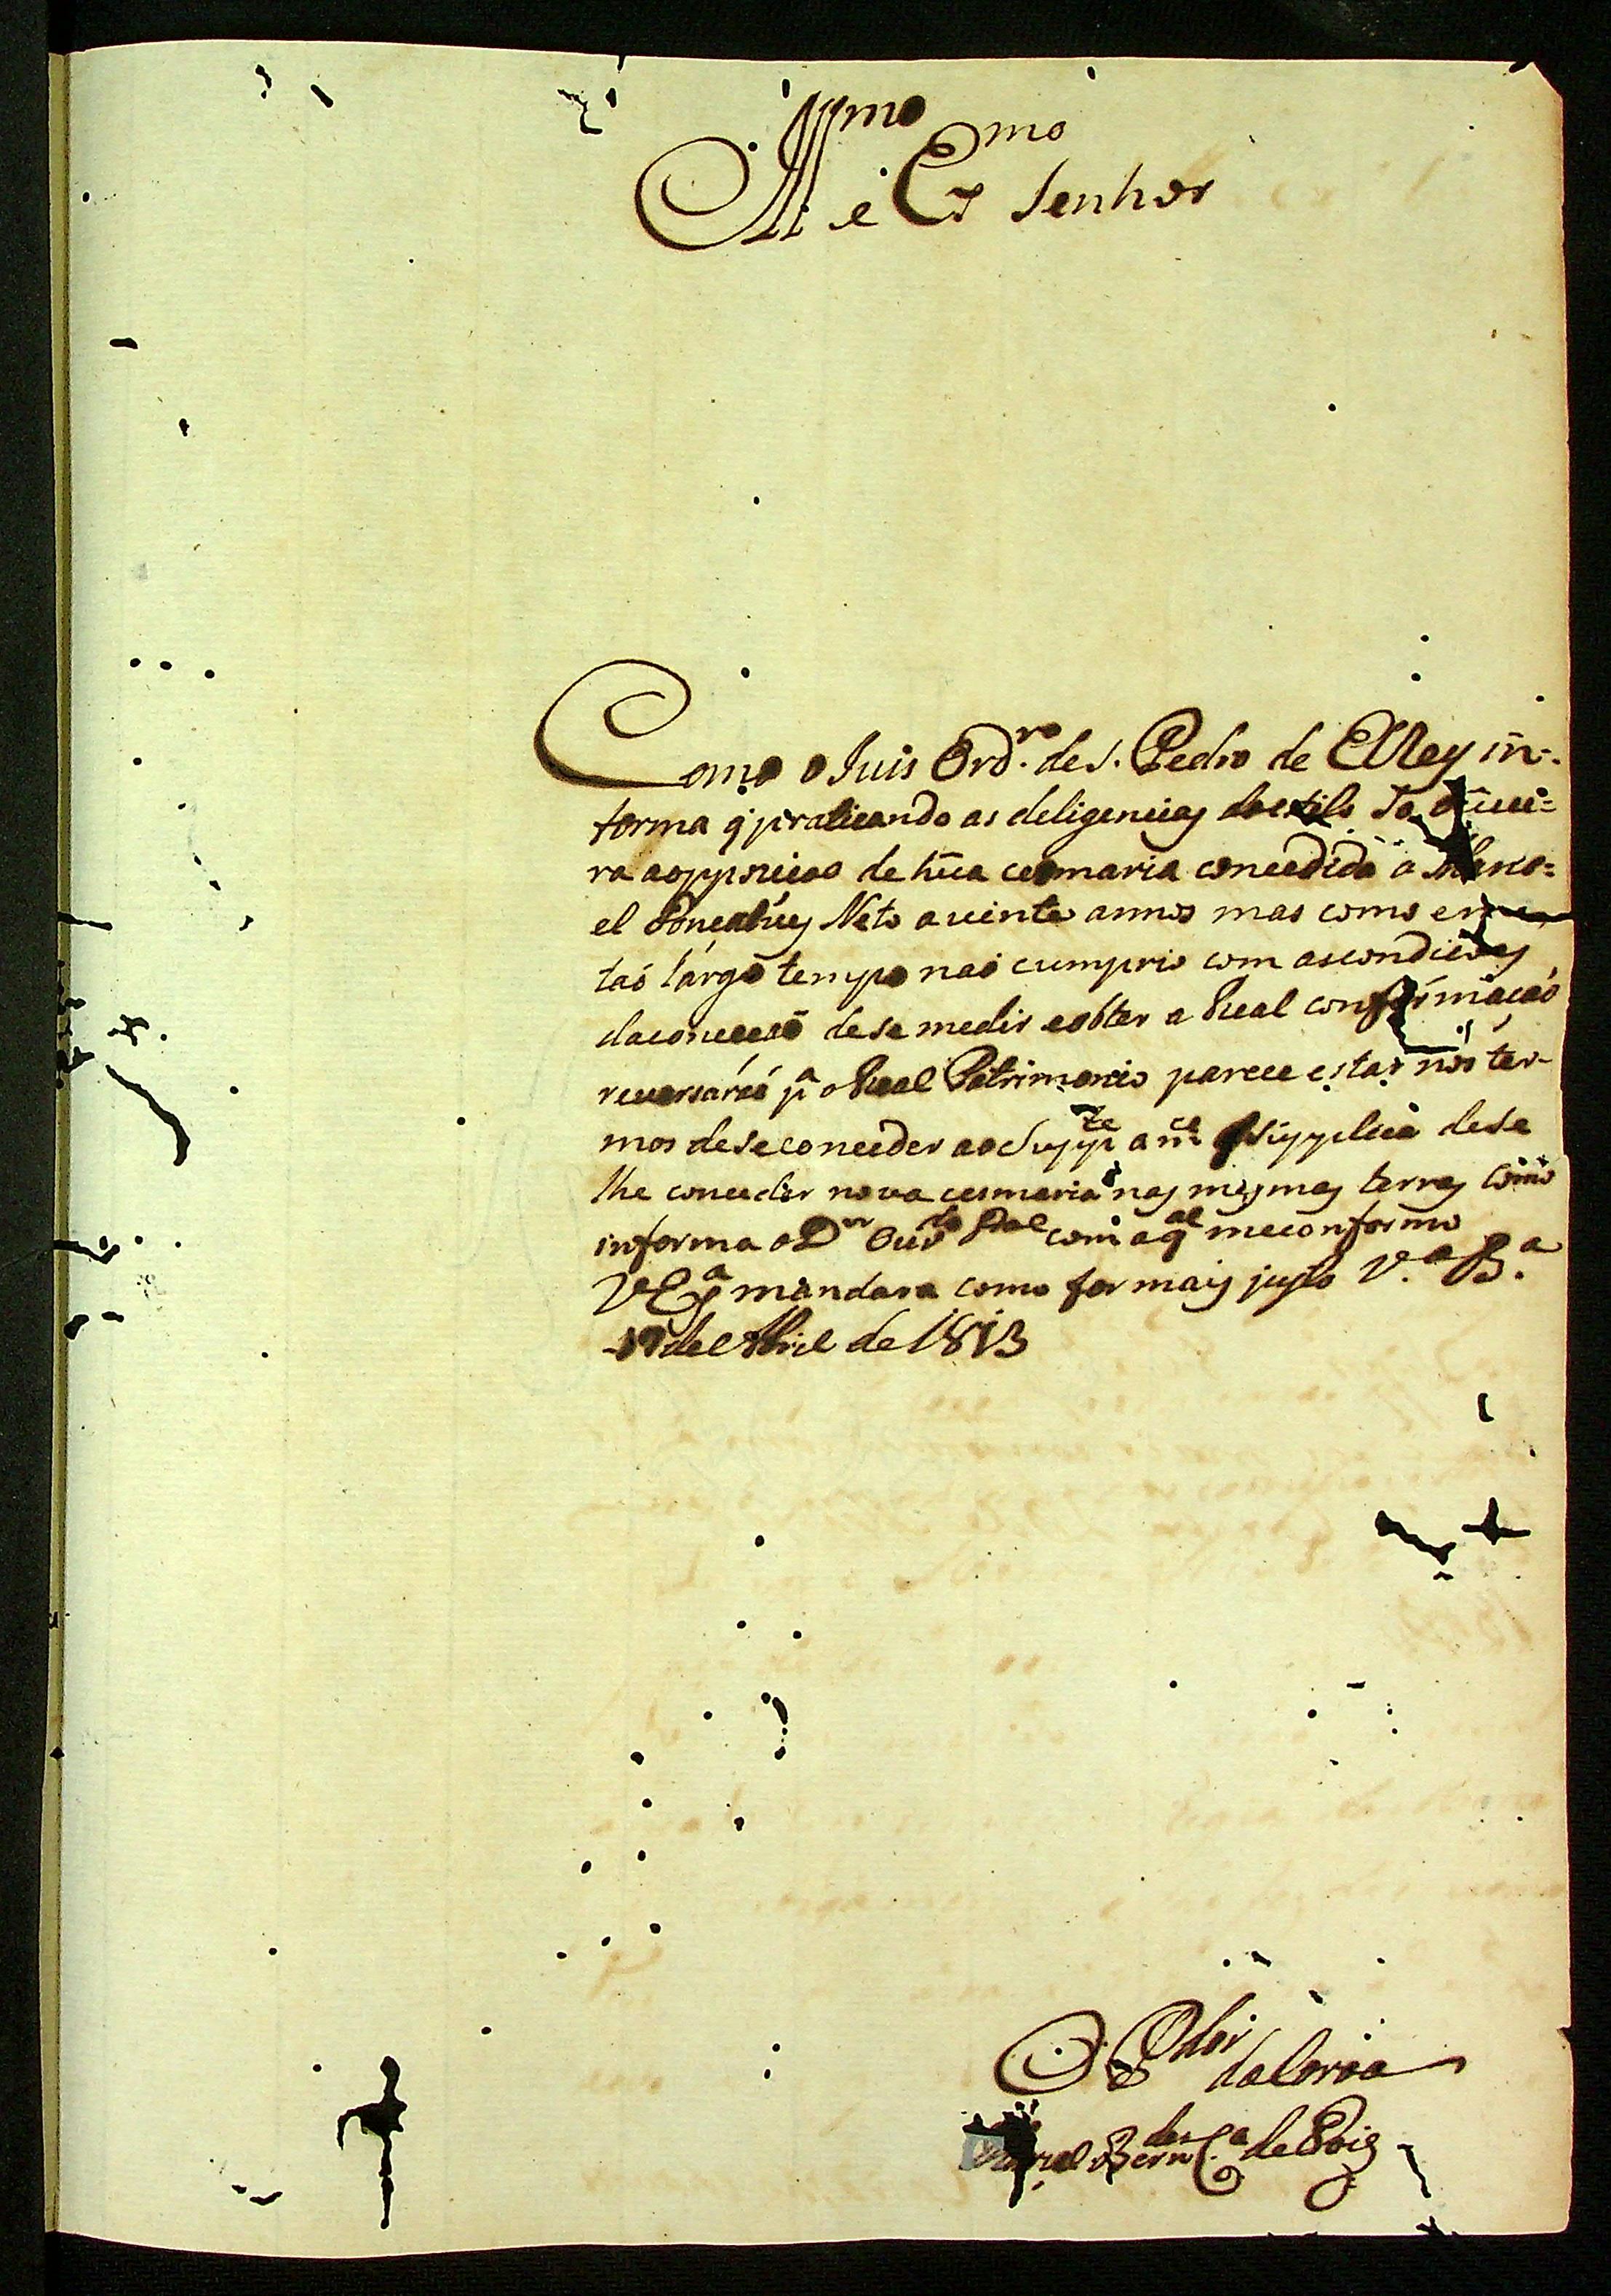 Illmo e Exmo Senhor
Como o Juis Ordro. de S. Pedro de ElRey in-
forma q praticando as deligencias do estilo So
ra aopposicao de hua cesmaria concedida a Mano=
el Gonçalues Neto a vinte annos mas como em
taó largo tempo naó cumprio com as condicoes
da concecaó de se medir e obter a Real confirmaçaó
pa o Real Patrimonio parece estar nos ter-
mos de se conceder ao Suppte a me Supplica de se
lhe conceder nova cesmaria nas mesmas terras como
informa o Dr com a qal me conformo
VExa mandara como for mais justo Va. Ba.
19 de Abril de 1813
da Coroa
de Pois